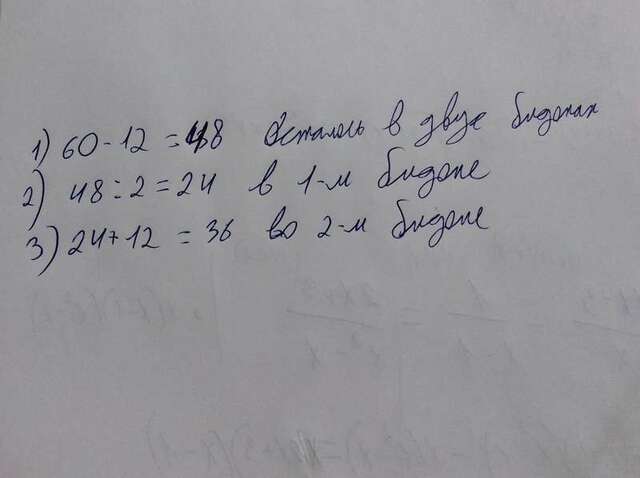 1) 60 - 12 = 48 Осталось в двух бидонах
2) 48 : 2 = 24 в 1-м бидоне
3) 24 + 12 = 36 во 2-м бидоне